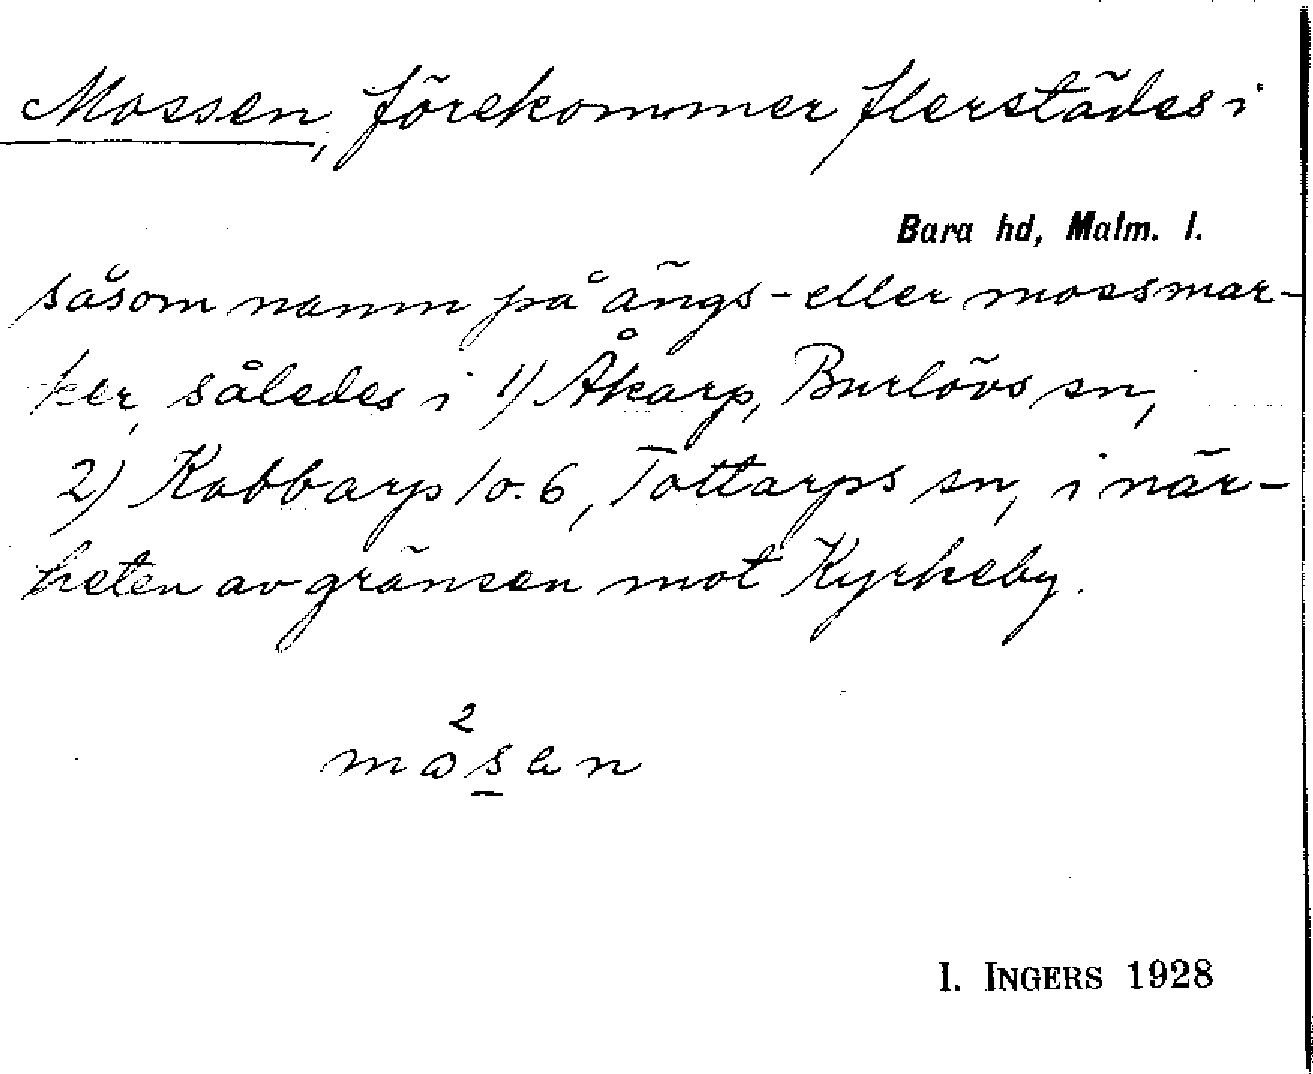 Mossen, förekommer flerstädes i
Bara hd, Malm. l.
såsom namn på ängs- eller mossmar-
ker, således i 1) Åkarp, Burlövs sn,
2) Kabbarp 1o. 6, Tottarps sn, i när-
heten av gränsen mot Kyrkeby.
2
måsen
I. INGERS 1928